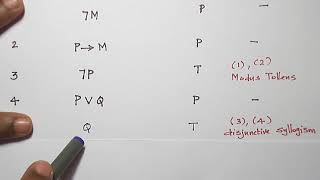 7M P -
2 P→M P -
3 7P T (1), (2)
Modus Tollens
4 P V Q P -
Q T (3), (4)
disjunctive syllogism